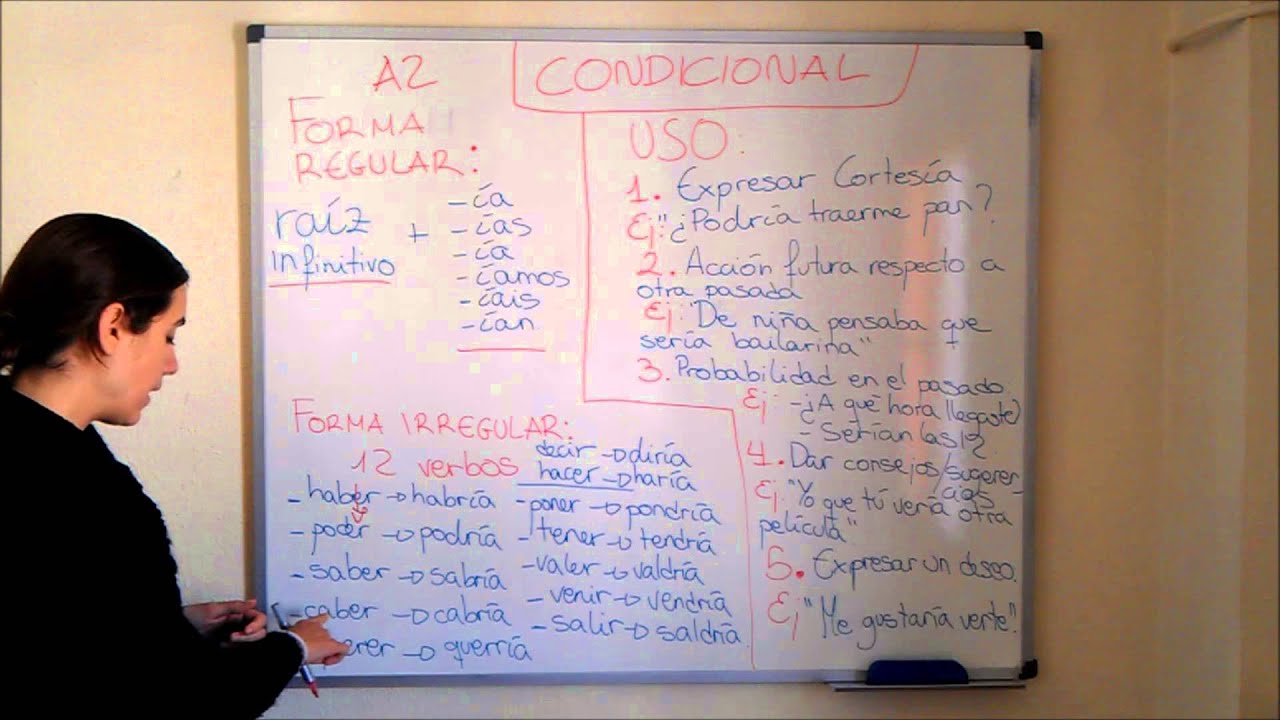 A2
CONDICIONAL
FORMA
REGULAR:
raíz
infinitivo
+
-ía
-ías
-ía
-íamos
-íais
-ían
FORMA IRREGULAR:
12 verbos
- haber → habría
- poder → podría
- saber → sabría
- caber → cabría
erer → querría
decir → diría
hacer → haría
- poner → pondría
- tener → tendría
- valer → valdría
- venir → vendría
- salir → saldría
USO:
1. Expresar Cortesía
Ej "¿Podría traerme pan?
2. Acción futura respecto a
otra pasada
Ej: "De niña pensaba que
sería bailarina"
3. Probabilidad en el pasado
Ej: -¿A qué hora llegaste?
- Serían las 12
4. Dar consejos/sugeren-
cias
Ej: "Yo que tú vería otra
película"
5. Expresar un deseo.
Ej "Me gustaría verte".